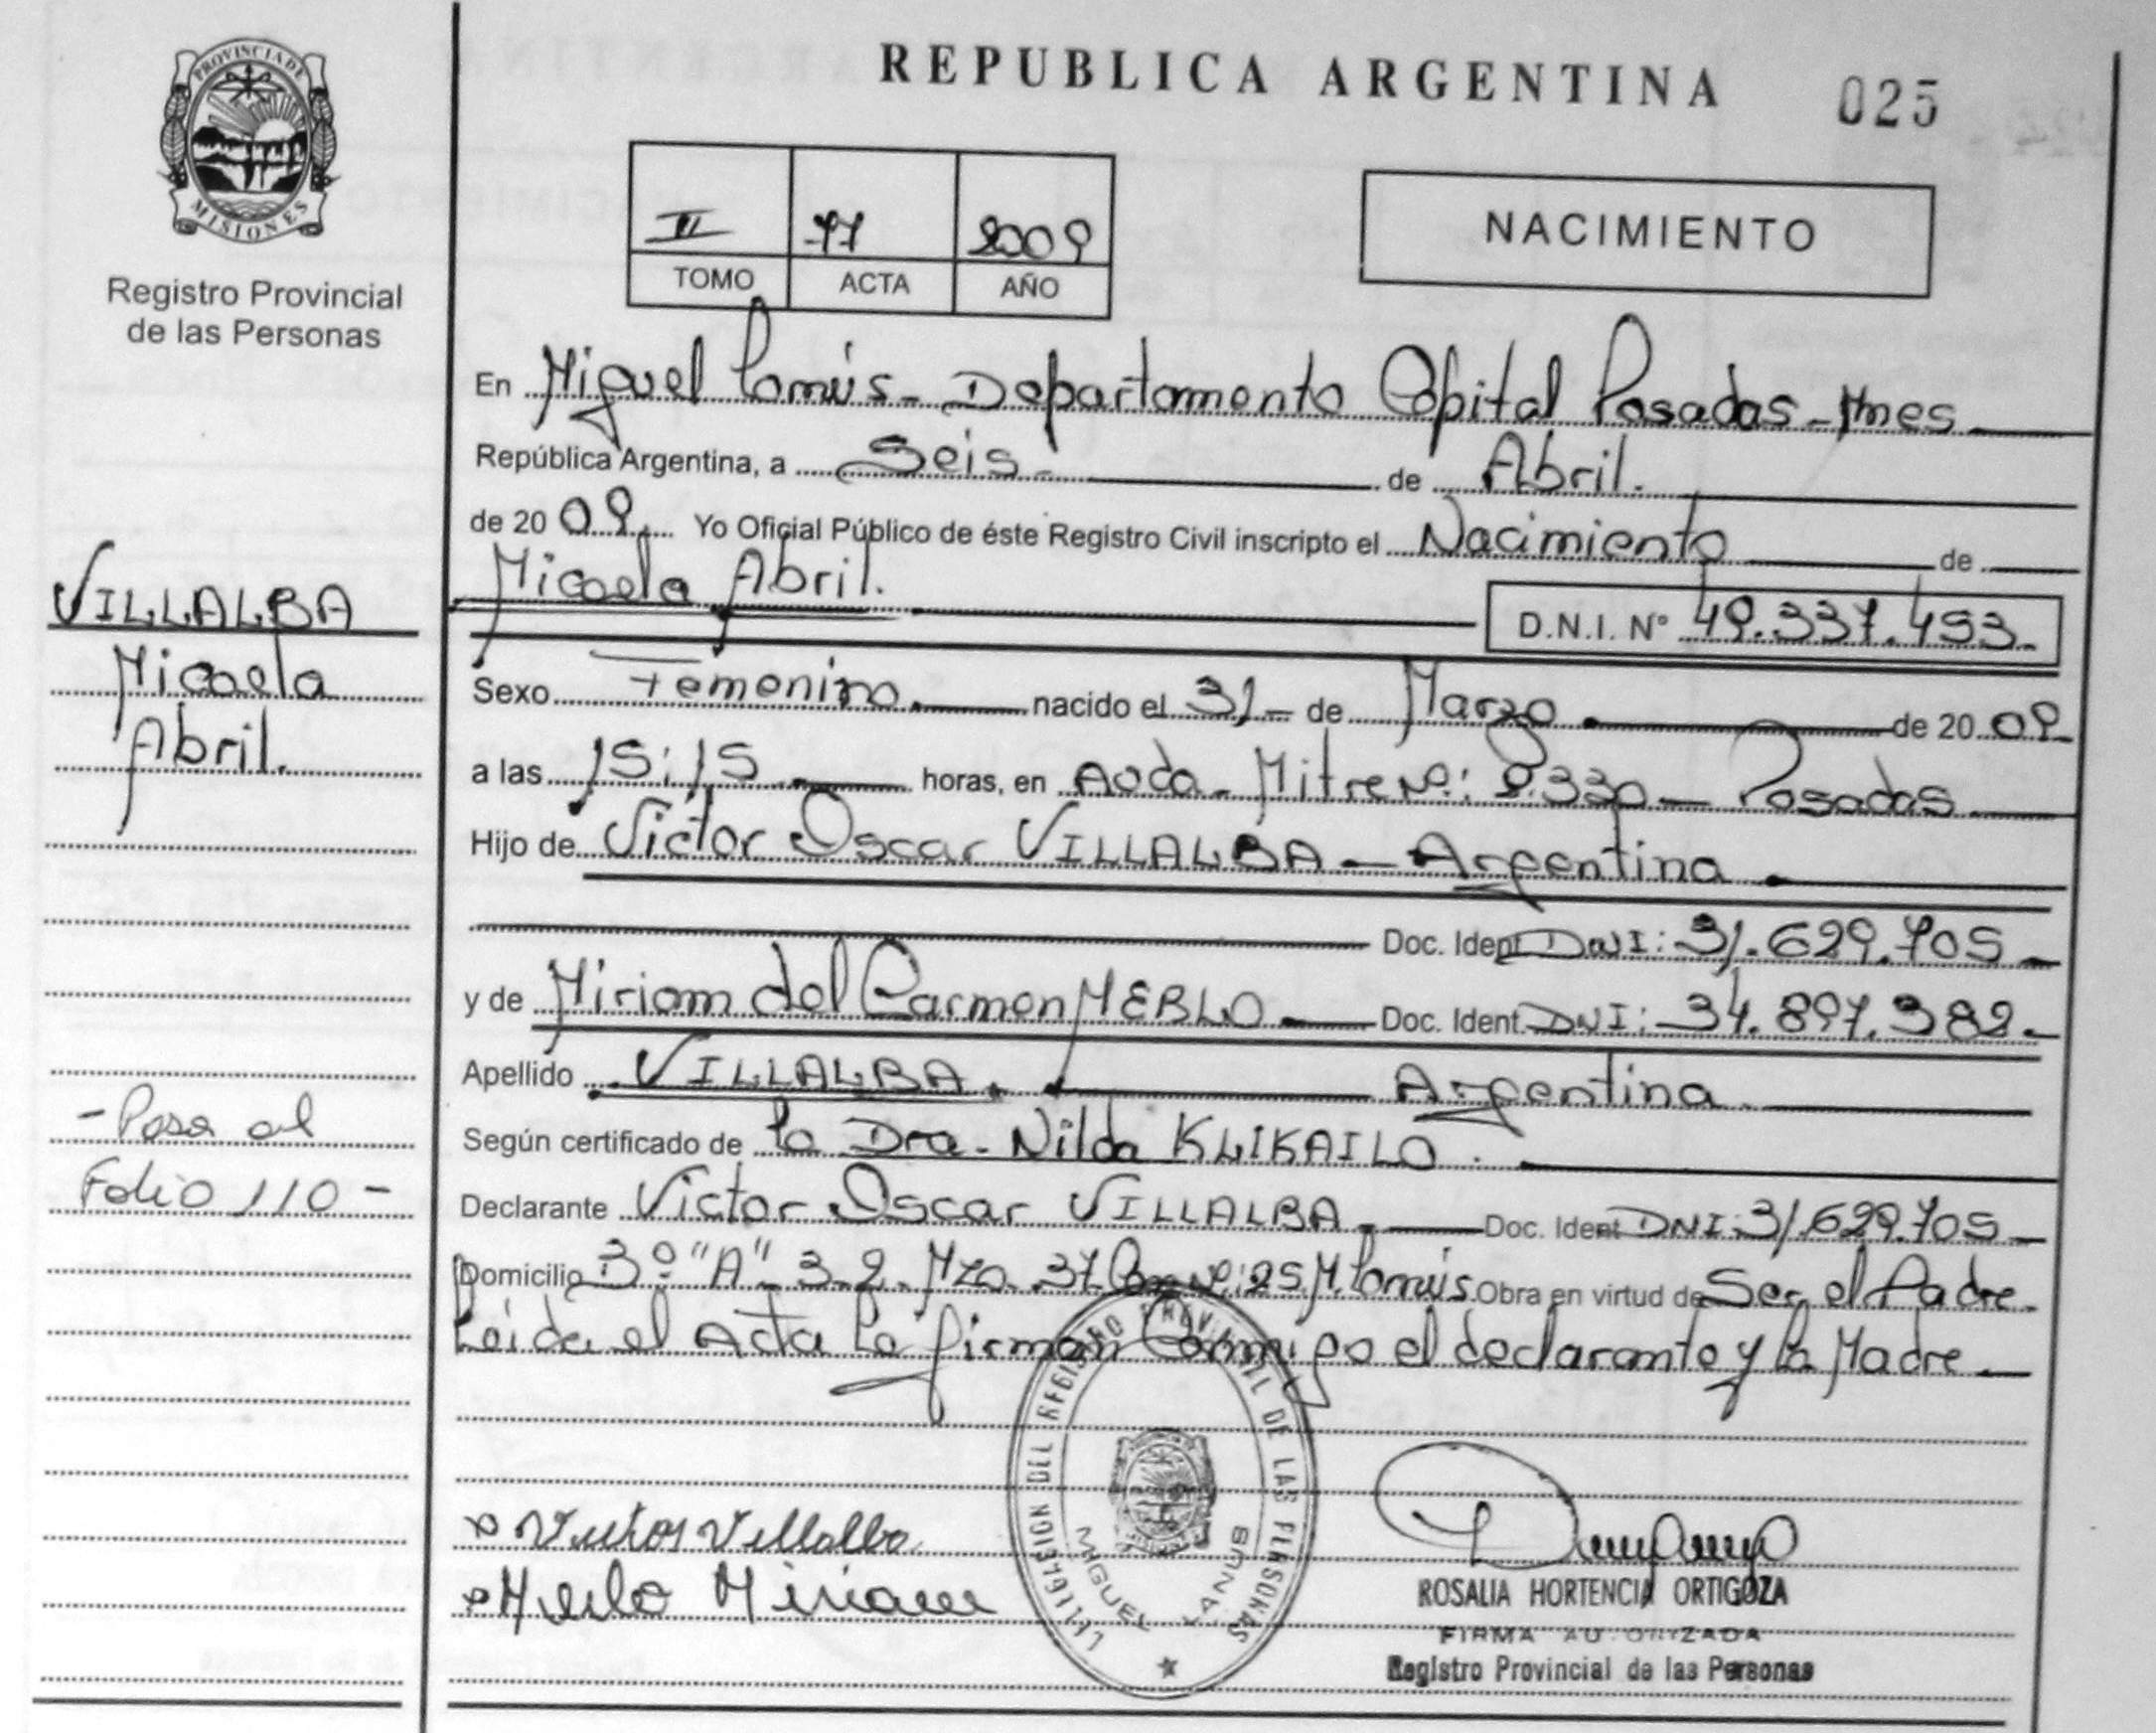 REPUBLICA ARGENTINA
025
PROVINCIA DE MISIONES
Registro Provincial
de las Personas
II 77 2009
TOMO ACTA AÑO
NACIMIENTO
En Miguel Lanús - Departamento Capital Posadas - Mnes
República Argentina, a Seis - de Abril.
de 20 09. Yo Oficial Público de éste Registro Civil inscripto el Nacimiento de
Micaela Abril. D.N.I. Nº 49.337.453.
VILLALBA
Micaela
Abril.
Sexo Femenino. nacido el 31 - de Marzo de 20 09
a las 15:15 horas, en Avda. Mitre Nº: 2.330 - Posadas
Hijo de Victor Oscar VILLALBA - Argentina
Doc. Ident DNI: 31.629.705
y de Miriam del Carmen MERLO Doc. Ident. DNI: 34.897.382.
Apellido VILLALBA. Argentina
Según certificado de la Dra. Nilda KLIKAILO.
Declarante Victor Oscar VILLALBA. Doc. Ident DNI: 31.629.705
Domicilio 3º "A" 3-2. Mza. 37 Casa Nº: 25 M. Lanús Obra en virtud de Ser el Padre
Leida el Acta la firman Conmigo el declarante y la Madre
-Pasa al
Folio 110-
Victor Villalba
Merlo Miriam
DELEGACION DEL REGISTRO PROVINCIAL DE LAS PERSONAS
MIGUEL LANUS
ROSALIA HORTENCIA ORTIGOZA
FIRMA AUTORIZADA
Registro Provincial de las Personas